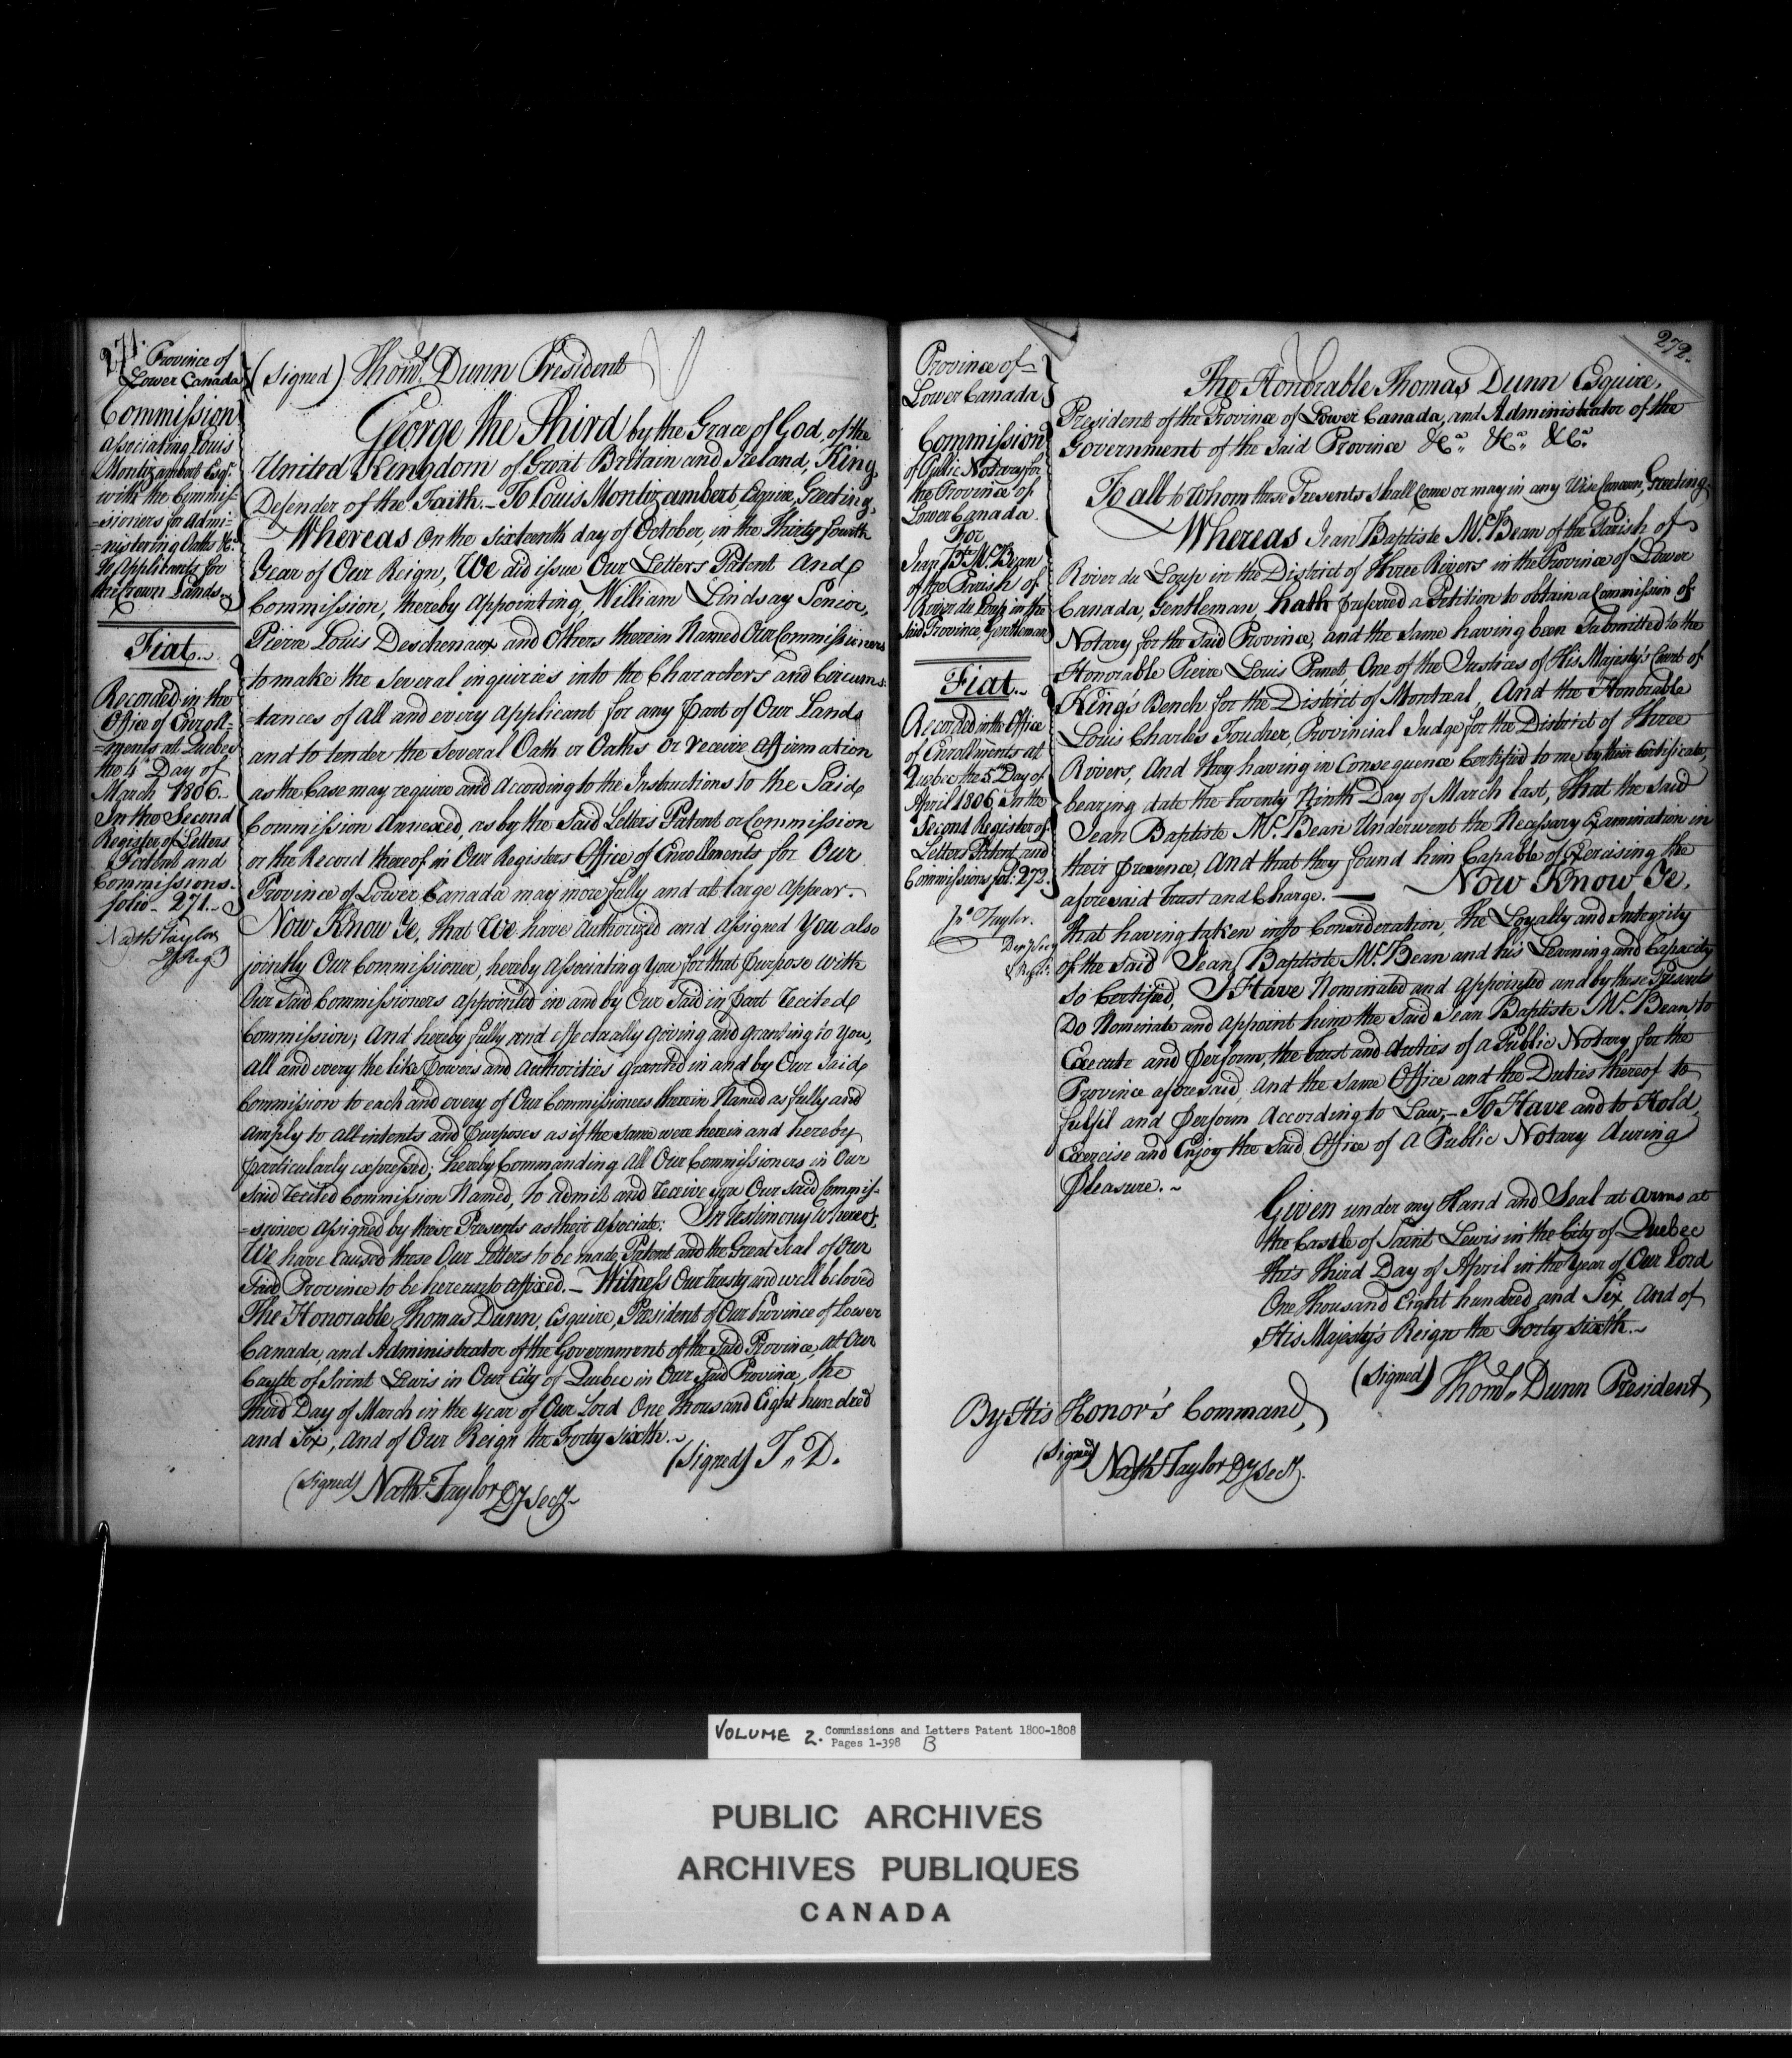 271.
Province of
Lower Canada
Commission
associating Louis
Montizambert Esqr.
with the Commis-
=sioners for Admi=
=nistering Oaths &c.
to Applicants for
the Crown Lands.
Fiat.
Recorded in the
Office of Enroll=
=ments at Quebec
the 4th Day of
March 1806.
In the Second
Register of Letters
Patent and
Commissions.
folio 271.
Nathl Taylor
Dy Regr
(Signed) Thoms. Dunn President
George the Third by the Grace of God, of the
United Kingdom of Great Britain and Ireland, King,
Defender of the Faith. - To Louis Montizambert, Esquire, Greeting,
Whereas on the Sixteenth day of October, in the Thirty fourth
Year of Our Reign, We did issue Our Letters Patent and
Commission, thereby appointing William Lindsay Senior,
Pierre Louis Deschenaux and Others therein Named Our Commissioners
to make the Several inquiries into the Characters and Circums=
=tances of all and every applicant for any part of Our Lands
and to tender the Several Oath or Oaths or receive affirmation
as the Case may require and according to the Instructions to the Said
Commission Annexed, as by the Said Letters Patent or Commission
or the Record thereof in Our Registers Office of Enrollments for Our
Province of Lower Canada may more fully and at large appear.
Now Know Ye, that We have authorized and assigned You also
jointly Our Commissioner, hereby associating You for that purpose with
Our Said Commissioners appointed in and by Our Said in part recited
Commission; And hereby fully and effectually giving and granting to You,
all and every the like powers and authorities granted in and by Our Said
Commission to each and every of Our Commissioners therein Named as fully and
amply to all intents and purposes as if the Same were herein and hereby
particularly expressed; hereby Commanding all Our Commissioners in Our
Said recited Commission Named, to admit and receive you Our Said Commis=
=sioner assigned by these Presents as their associate. In Testimony whereof,
We have caused these Our Letters to be made Patent and the Great Seal of Our
Said Province to be hereunto affixed. - Witness Our Trusty and well beloved
The Honorable Thomas Dunn, Esquire, President of Our Province of Lower
Canada, and Administrator of the Government of the Said Province, at Our
Castle of Saint Lewis in Our City of Quebec in Our Said Province, the
Third Day of March in the Year of Our Lord One Thousand Eight hundred
and Six, and of Our Reign the Forty sixth.
(Signed) T. D.
(Signed) Nathl Taylor Dy Secy
272.
Province of
Lower Canada
Commission
of Public Notary for
the Province of
Lower Canada
For
Jean Bte Mc. Bean
of the Parish of
Rivier du Loup in the
Said Province, Gentleman
Fiat.
Recorded in the Office
of Enrollments at
Quebec the 5th Day of
April 1806, In the
Second Register of
Letters Patent and
Commissions fol: 272.
Taylor.
Depy Secy
& Regr.
The Honorable Thomas Dunn Esquire,
President of the Province of Lower Canada, and Administrator of the
Government of the Said Province &ca. &ca. &ca.
To all to whom these Presents shall Come or may in any Wise Concern, Greeting,
Whereas Jean Baptiste Mc. Bean of the Parish of
Rivier du Loup in the District of Three Rivers in the Province of Lower
Canada, Gentleman, hath preferred a Petition to obtain a Commission of
Notary for the Said Province, and the Same having been Submitted to the
Honorable Pierre Louis Panet, One of the Justices of His Majesty's Court of
King's Bench for the District of Montreal, And the Honorable
Louis Charles Foucher, Provincial Judge for the District of Three
Rivers, And they having in Consequence Certified to me by their Certificate,
bearing date the Twenty Ninth Day of March last, that the Said
Jean Baptiste Mc. Bean Underwent the Necessary Examination in
their presence, And that they found him Capable of Exercising the
aforesaid trust and Charge. — Now Know Ye,
that having taken into Consideration, the Loyalty and Integrity
of the Said Jean Baptiste Mc. Bean and his Learning and Capacity
So Certified, I Have Nominated and appointed and by these Presents
Do Nominate and appoint him the Said Jean Baptiste Mc. Bean, to
Execute and perform, the trust and duties of a Public Notary for the
Province aforesaid, and the Same Office and the Duties thereof to
fulfil and perform according to Law; - To Have and to Hold,
Exercise and Enjoy the Said Office of a Public Notary during
pleasure. ~
Given under my Hand and Seal at arms at
the Castle of Saint Lewis in the City of Quebec
this Third Day of April in the Year of Our Lord
One Thousand Eight hundred and Six, and of
His Majesty's Reign the Forty sixth. ~
(Signed) Thoms. Dunn President
By His Honor's Command,
(Signed) Nathl Taylor Dy Secy.
VOLUME 2. Commissions and Letters Patent 1800-1808
Pages 1-398 B
PUBLIC ARCHIVES
ARCHIVES PUBLIQUES
CANADA